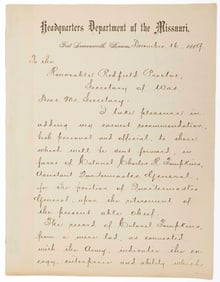 Headquarters Department of the Missouri.
Fort Leavenworth, Kansas, December 16, 1889
To the
Honorable Redfield Proctor,
Secretary of War.
Dear Mr. Secretary:
I take pleasure in
adding my earnest recommendation,
both personal and official, to those
which will be sent forward, in
favor of Colonel Charles H. Tompkins,
Assistant Quartermaster General,
for the position of Quartermaster
General, upon the retirement of
the present able Chief.
The record of Colonel Tompkins,
from a mere lad, as connected
with the Army, indicates the en-
ergy, enterprise and ability which